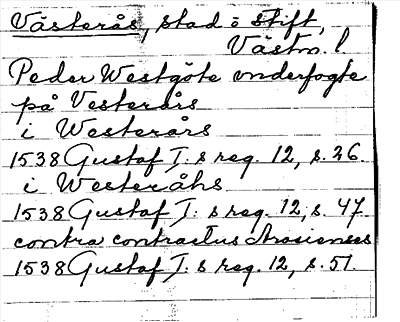 Västerås, stad o stift,
Västm. l.
Peder Westgöte vnderfogte
på Vesterårs
i Westerårs
1538 Gustaf I: s reg. 12, s. 26.
i Westeråhs
1538 Gustaf I: s reg. 12, s. 47
contra contractus Arosienses
1538 Gustaf I: s reg. 12, s. 51.